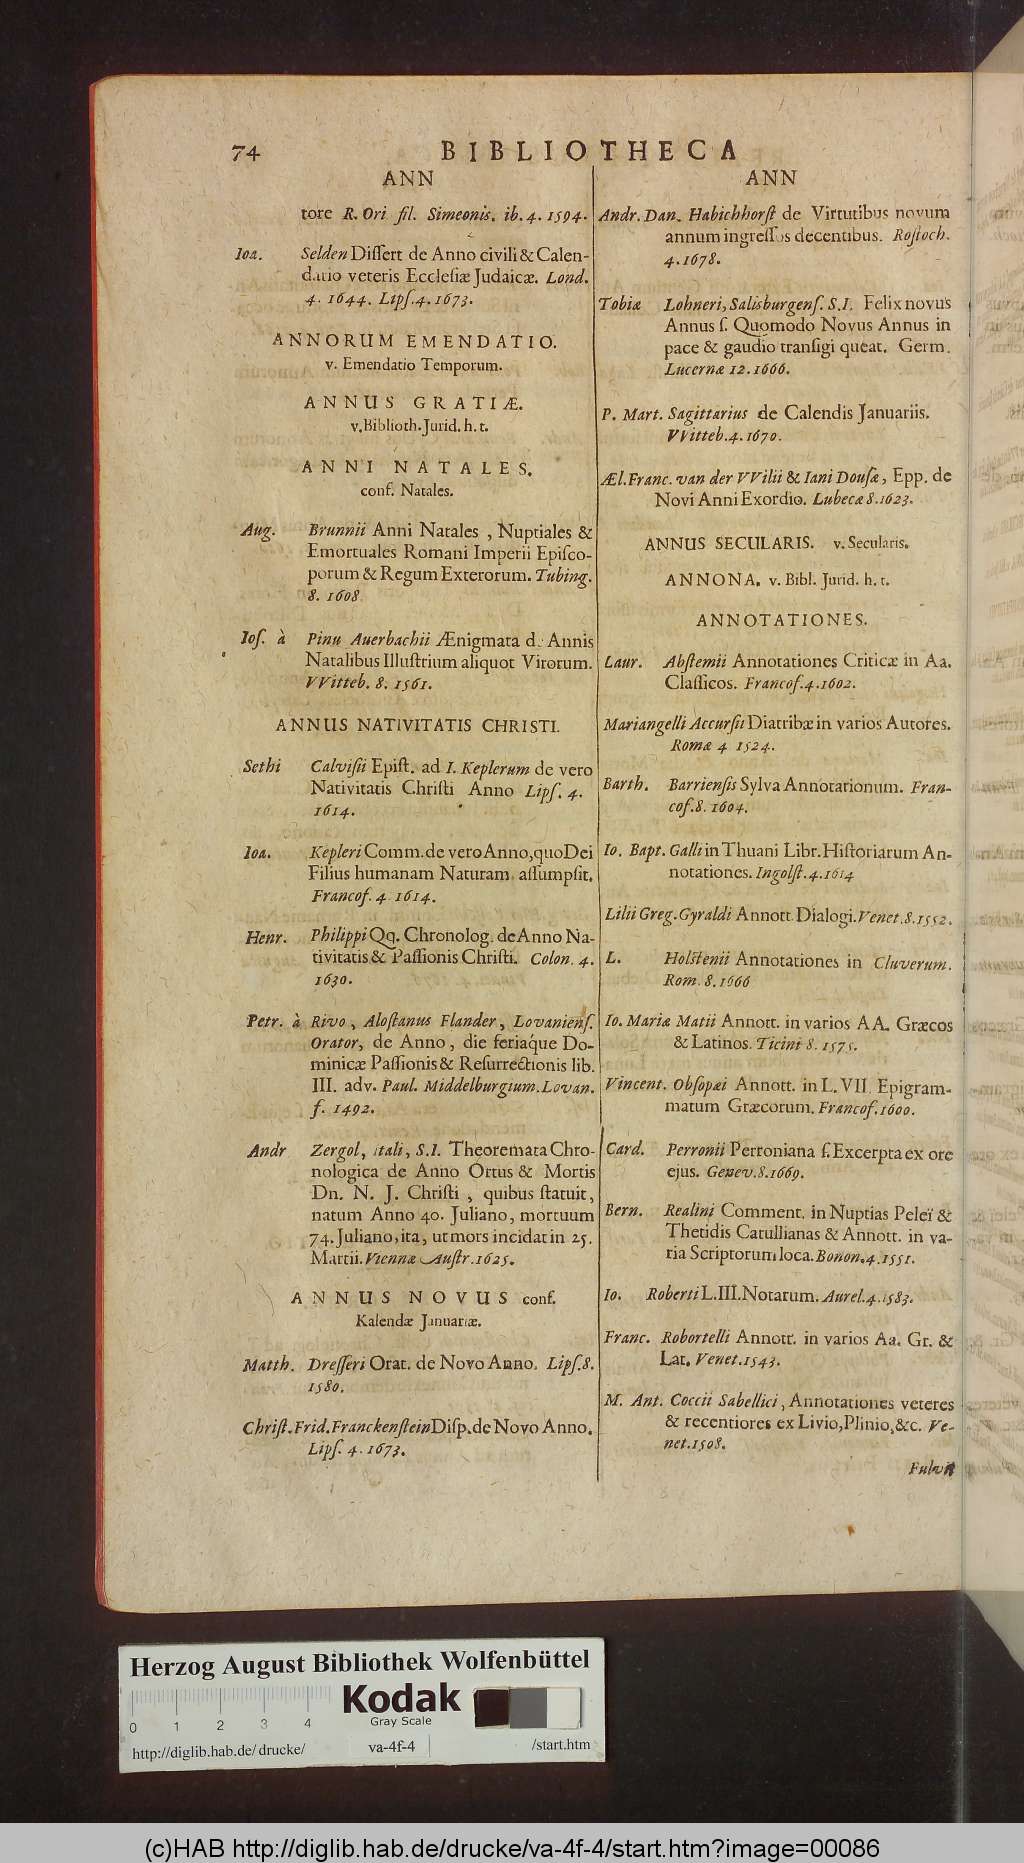 74 BIBLIOTHECA
ANN
tore R. Ori fil. Simeonis. ib. 4. 1594.
Ioa. Selden Dissert de Anno civili & Calen-
dario veteris Ecclesiæ Judaicæ. Lond.
4. 1644. Lips. 4. 1673.
ANNORUM EMENDATIO.
v. Emendatio Temporum.
ANNUS GRATIÆ.
v. Biblioth. Jurid. h. t.
ANNI NATALES.
conf. Natales.
Aug. Brunnii Anni Natales, Nuptiales &
Emortuales Romani Imperii Episco-
porum & Regum Exterorum. Tubing.
8. 1608
Ios. à Pinu Auerbachii Ænigmata de Annis
Natalibus Illustrium aliquot Virorum.
VVitteb. 8. 1561.
ANNUS NATIVITATIS CHRISTI.
Sethi Calvisii Epist. ad I. Keplerum de vero
Nativitatis Christi Anno Lips. 4.
1614.
Ioa. Kepleri Comm. de vero Anno, quo Dei
Filius humanam Naturam assumpsit.
Francof. 4 1614.
Henr. Philippi Qq. Chronolog. de Anno Na-
tivitatis & Passionis Christi. Colon. 4.
1630.
Petr. à Rivo, Alostanus Flander, Lovaniens.
Orator, de Anno, die feriaque Do-
minicæ Passionis & Resurrectionis lib.
III. adv. Paul. Middelburgium. Lovan.
f. 1492.
Andr Zergol, Itali, S.I. Theoremata Chro-
nologica de Anno Ortus & Mortis
Dn. N. J. Christi, quibus statuit,
natum Anno 40. Juliano, mortuum
74. Juliano, ita, ut mors incidat in 25.
Martii. Viennæ Austr. 1625.
ANNUS NOVUS conf.
Kalendæ Januariæ.
Matth. Dresseri Orat. de Novo Anno. Lips. 8.
1580.
Christ. Frid. Franckenstein Disp. de Novo Anno.
Lips. 4. 1673.
ANN
Andr. Dan. Habichhorst de Virtutibus novum
annum ingressos decentibus. Rostoch.
4. 1678.
Tobiæ Lohneri, Salisburgens. S.I. Felix novus
Annus s. Quomodo Novus Annus in
pace & gaudio transigi queat. Germ.
Lucernæ 12. 1666.
P. Mart. Sagittarius de Calendis Januariis.
VVitteb. 4. 1670.
Æl. Franc. van der VVilii & Iani Dousæ, Epp. de
Novi Anni Exordio. Lubecæ 8. 1623.
ANNUS SECULARIS. v. Secularis.
ANNONA. v. Bibl. Jurid. h. t.
ANNOTATIONES.
Laur. Abstemii Annotationes Criticæ in Aa.
Classicos. Francof. 4. 1602.
Mariangelli Accursii Diatribæ in varios Autores.
Romæ 4 1524.
Barth. Barriensis Sylva Annotarionum. Fran-
cof. 8. 1604.
Io. Bapt. Galli in Thuani Libr. Historiarum An-
notationes. Ingolst. 4. 1614
Lilii Greg. Gyraldi Annott. Dialogi. Venet. 8. 1552.
L. Holstenii Annotationes in Cluverum.
Rom. 8. 1666
Io. Mariæ Matii Annott. in varios AA. Græcos
& Latinos. Ticini 8. 1575.
Vincent. Obsopæi Annott. in L. VII Epigram-
matum Græcorum. Francof. 1600.
Card. Perronii Perroniana s. Excerpta ex ore
ejus. Genev. 8. 1669.
Bern. Realini Comment. in Nuptias Peleï &
Thetidis Catullianas & Annott. in va-
ria Scriptorum loca. Bonon. 4. 1551.
Io. Roberti L. III. Notarum. Aurel. 4. 1583.
Franc. Robortelli Annott. in varios Aa. Gr. &
Lat. Venet. 1543.
M. Ant. Coccii Sabellici, Annotationes veteres
& recentiores ex Livio, Plinio, &c. Ve-
net. 1508.
Fulvii
Herzog August Bibliothek Wolfenbüttel
Kodak
Gray Scale
0 1 2 3 4
http://diglib.hab.de/drucke/ va-4f-4 /start.htm
(c)HAB http://diglib.hab.de/drucke/va-4f-4/start.htm?image=00086